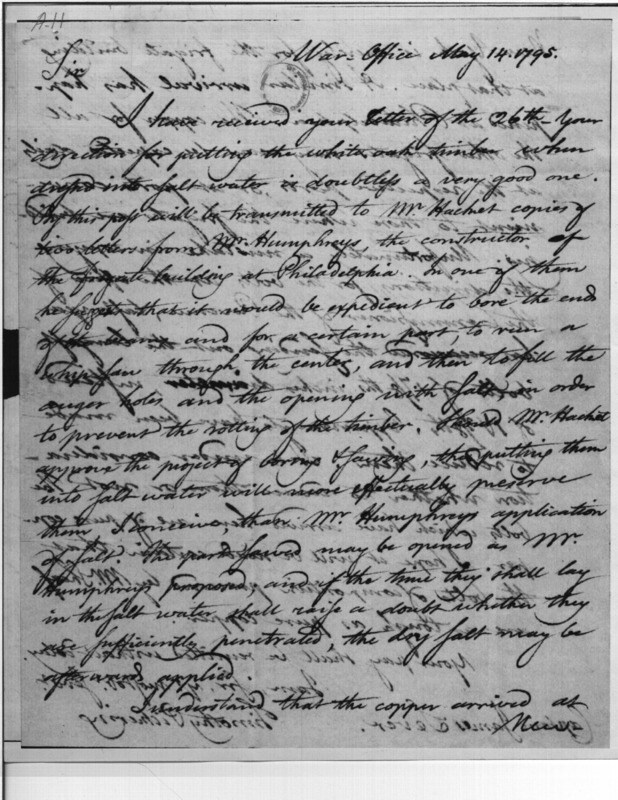 A-11
War Office May 14. 1795.
Sir
I have received your letter of the 26th. Your
direction for putting the white oak timber when
into salt water is doubtless a very good one.
By this post will be transmitted to Mr. Hacket copies of
two letters from Mr. Humphreys, the constructor of
the frigate building at Philadelphia. In one of them
he that it would be expedient to bore the ends
of the beams and for a certain part, to run a
whip saw through the center, and then to fill the
auger holes and the opening with salt, in order
to prevent the rotting of the timber. Should Mr. Hacket
approve the project of boring & sawing, the putting them
into salt water will more effectually preserve
them I conceive than Mr. Humphreys application
of salt. The parts sawed may be opened as Mr.
Humphreys proposed and if the time they shall lay
in the salt water shall raise a doubt whether they
are sufficiently penetrated, the dry salt may be
afterwards applied.
I understand that the copper arrived at
New